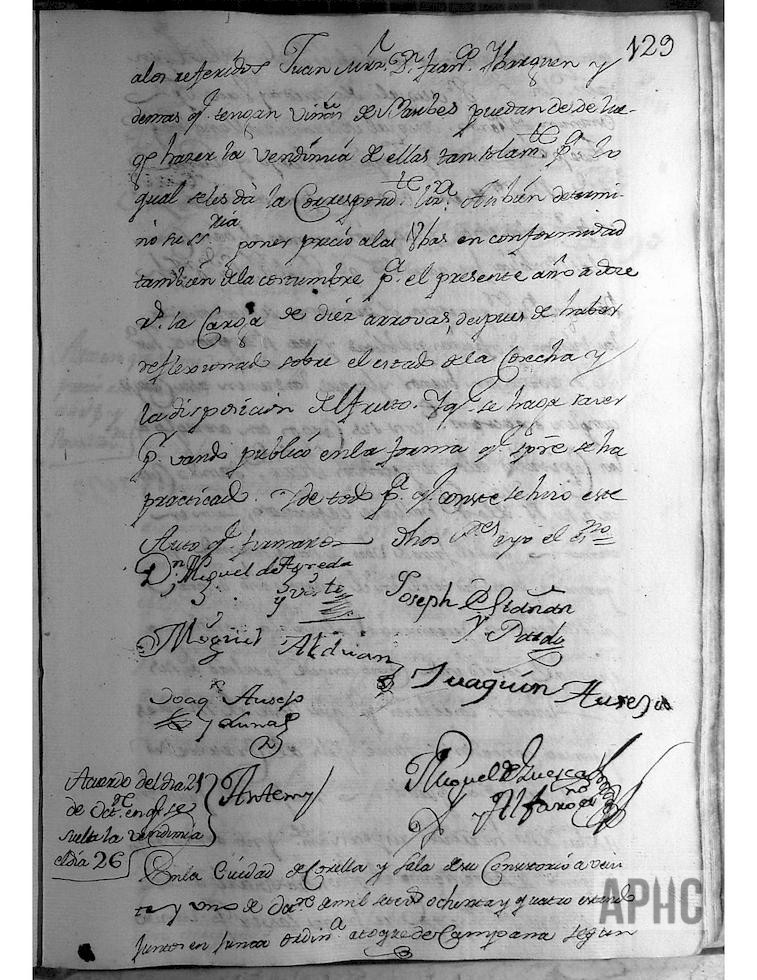 129
alos referidos Juan Mrn. Dn. Franco. Ybarguen y
demas q. tengan viñas de Maribes puedan desde lue-
go hazer la vendimia de ellas tan solamte. pa. lo
qual seles dá la Correspondte. liza. Tambien determi-
nó su Sria poner precio alas Vbas en conformidad
tambien dela costumbre pa. el presente año a doze
Rs. la Carga de diez arrovas, despues de haber
reflexionado sobre el estado dela Cosecha y
la disposicion del fruto. Y q. se haga saver
p. vando publico enla forma q. spre se ha
practicado. Y de todo pa. q. conste se hizo este
Auto q. firmaron dhos Sres. e yo el Sno
Dn. Miguel de Agreda
y Veste
Joseph de Grañan
y Pardo
Miguel Aldrian
Joaqn. Ausejo
y Luna
Juaquin Ausejo
Miguel de Luesca
y Alfaro no
Antemy
Acuerdo del dia 21
de Octre. en q. se
suelta la vendimia
el dia 26
Enla Ciudad de Corella y Sala de su Consistorio a vein
te y uno de Octre. de mil setezos ochenta y quatro estando
Juntos en Junta ordina. atoque de Campana segun
APHC